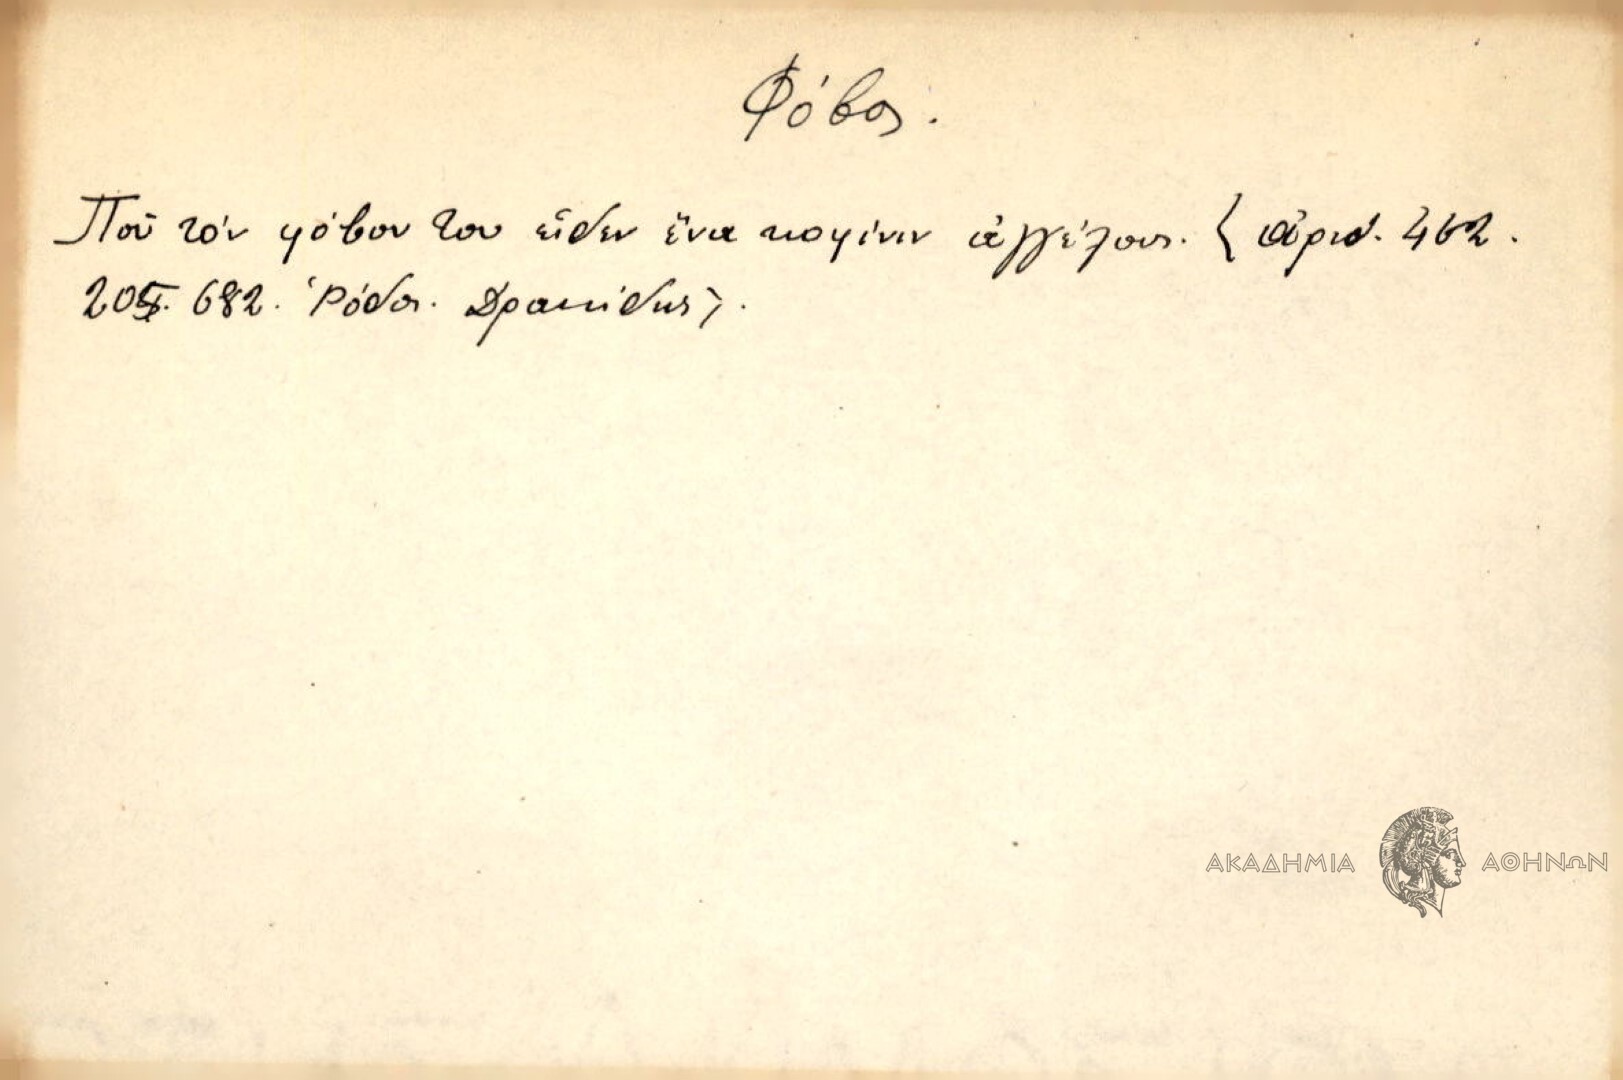 Φόβος.
Ποῦ τὸν φόβον του εἶδεν ἕνα κοφίνιν ἀγγέλους. ⟨ ἀριθ. 462.
682. Ῥόδος. Δρακίδης⟩.
ΑΚΑΔΗΜΙΑ ΑΘΗΝΩΝ